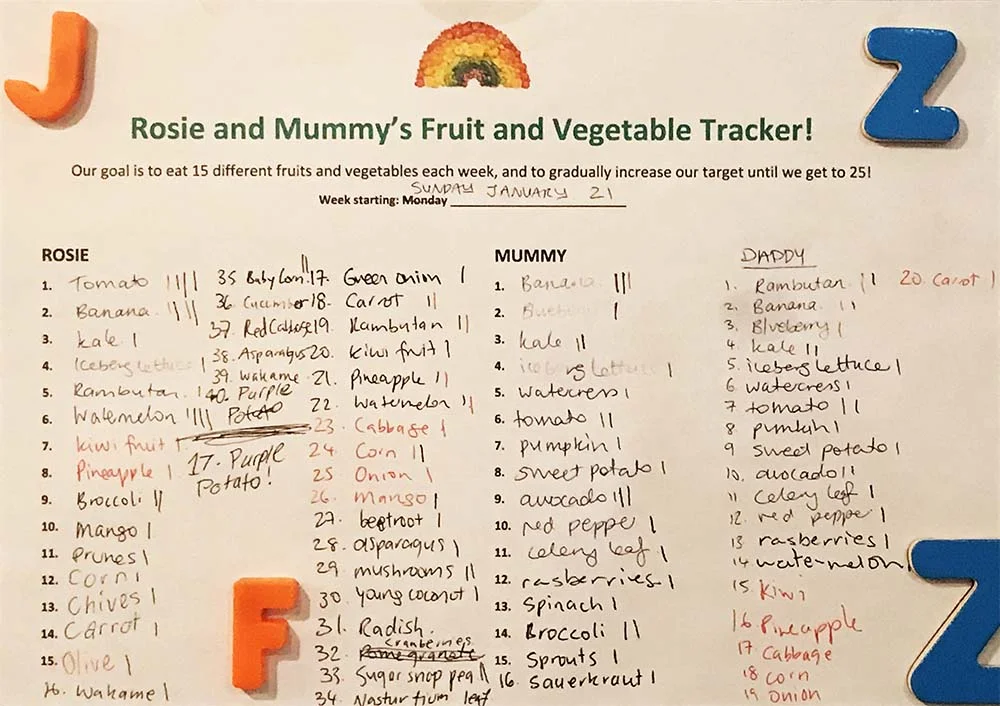 J
Z
Rosie and Mummy's Fruit and Vegetable Tracker!
Our goal is to eat 15 different fruits and vegetables each week, and to gradually increase our target until we get to 25!
SUNDAY JANUARY 21
Week starting: Monday
ROSIE
1. Tomato ||||
2. Banana ||||
3. kale |
4. Iceberg lettuce |
5. Rambutan |
6. Watemelon ||||
7. kiwi fruit |
8. Pineapple |
9. Broccoli ||
10. Mango |
11. Prunes |
12. Corn |
13. Chives |
14. Carrot |
15. Olive |
16. Wakame |
17. Purple
Potato!
F
35 Baby Corn ||
36 Cucumber
37. Red Cabbage
38. Asparagus
39. Wakame
40. Purple
Potato
17. Green onion |
18. Carrot ||
19. Rambutan ||
20. kiwi fruit |
21. Pineapple ||
22. Watemelon ||
23. Cabbage |
24. Corn ||
25 Onion |
26. Mango |
27. beetroot |
28. asparagus |
29 mushrooms ||
30 young coconut |
31. Radish.
Cranberries
32 Pomegranate
33. Sugar snap pea ||
34. Nasturtium leaf
MUMMY
1. Banana |||
2. Blueberry |
3. kale ||
4. iceberg lettuce |
5. watercress |
6. tomato ||
7. pumpkin |
8. sweet potato |
9. avocado |||
10. red peppe |
11. celery leaf |
12. rasberries |
13. Spinach |
14. Broccoli ||
15. Sprouts |
16. Sauerkraut |
DADDY
1. Rambutan ||
2. Banana ||
3. Blueberry |
4. kale ||
5. iceberg lettuce |
6 watercress |
7 tomato ||
8 pumkin |
9 sweet potato |
10. avocado ||
11 celery leaf |
12. red peppe |
13 rasberries |
14 watermelon |
15. Kiwi
16 Pineapple
17 Cabbage
18 corn
19 onion
20. Carot |
Z